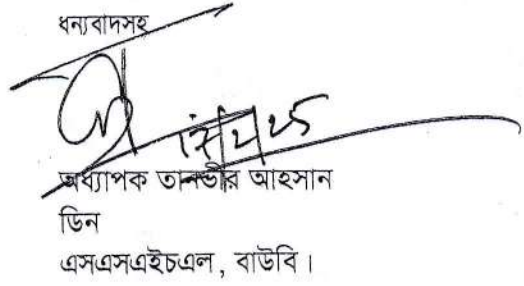 ধন্যবাদসহ
অধ্যাপক তানভীর আহসান
ডিন
এসএসএইচএল, বাউবি।